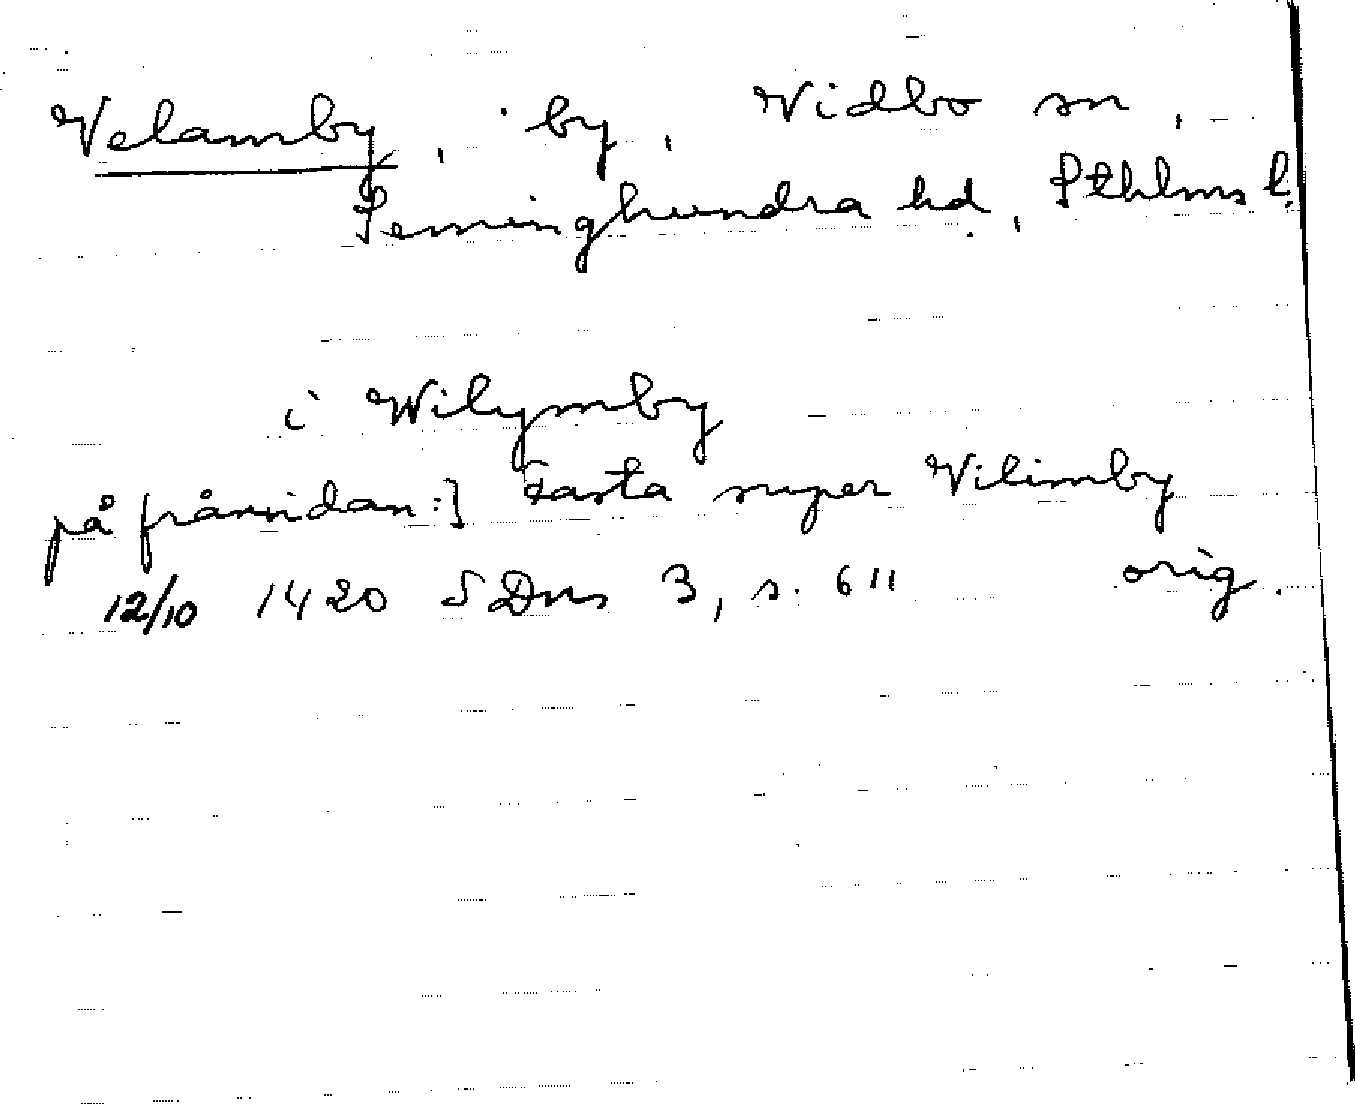 Velamby, by, Vidbo sn,
Seminghundra hd, Sthlms l.
i Wilymby
på frånsidan:] Fasta super Vilimby
12/10 1420 SDns 3, s. 611 orig.